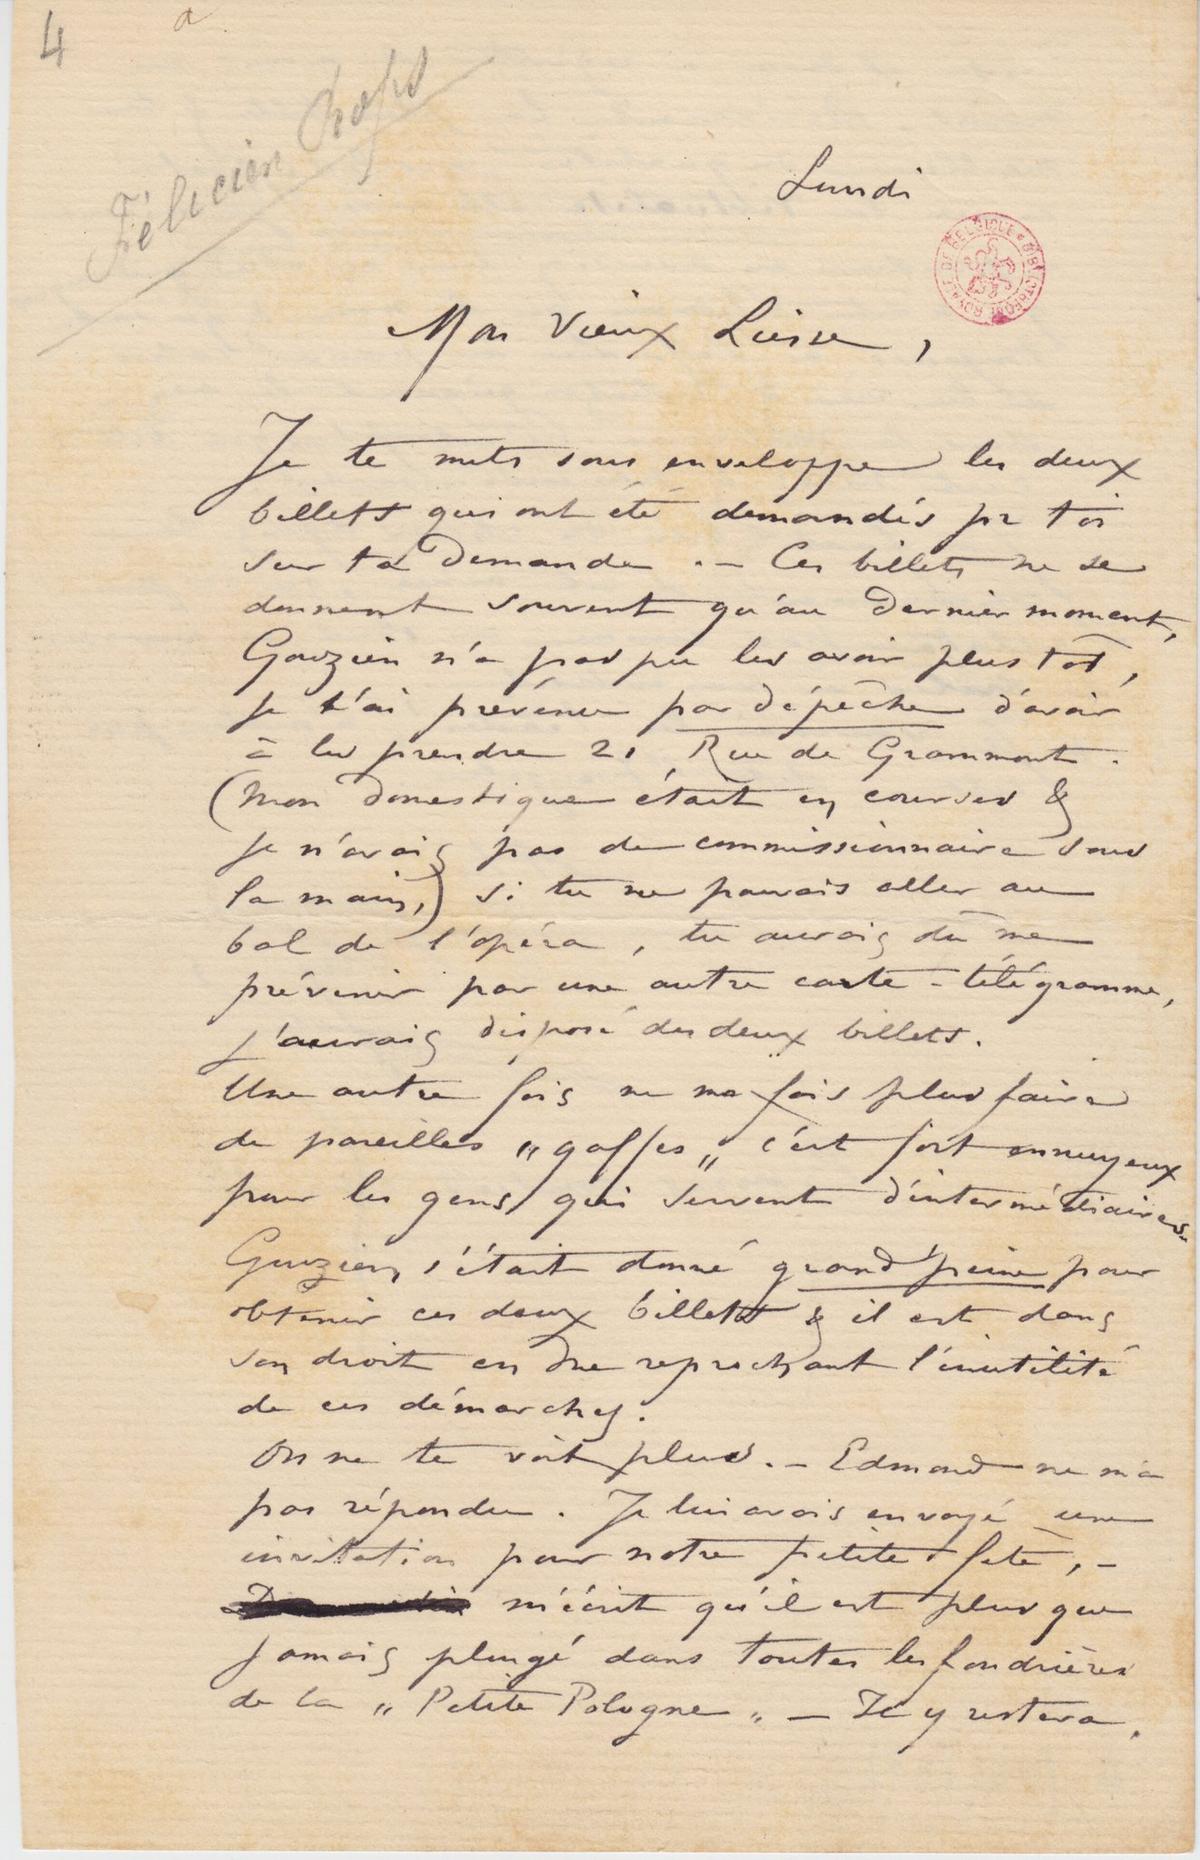 4
a
Félicien Rops
Lundi
BIBLIOTHÈQUE ROYALE DE BELGIQUE
Mon Vieux Liesse,
Je te mets sous enveloppe les deux
billets qui ont été demandés pr toi
sur ta Demande. — Ces billets ne se
donnent souvent qu'au Dernier moment,
Gouzien n'a pas pu les avoir plus tôt,
je t'ai prévenu par dépêche d'avoir
à les prendre 21 Rue de Grammont.
(Mon Domestique était en courses &
je n'avais pas de commissionnaire sous
la main,) si tu ne pouvais aller au
bal de l'opéra, tu aurais dû me
prévenir par une autre carte-télégramme,
j'aurais disposé des deux billets.
Une autre fois ne me fais plus faire
de pareilles „gaffes„ c'est fort ennuyeux
pour les gens qui servent d'intermédiaires.
Gouzien s'était donné grand'peine pour
obtenir ces deux billets & il est dans
son droit en me reprochant l'inutilité
de ces démarches.
On ne te voit plus. — Edmond ne m'a
pas répondu. Je lui avais envoyé une
invitation pour notre petite fête, —
m'écrit qu'il est plus que
jamais plongé dans toutes les fondrières
de la „Petite Pologne„ — Il y restera.